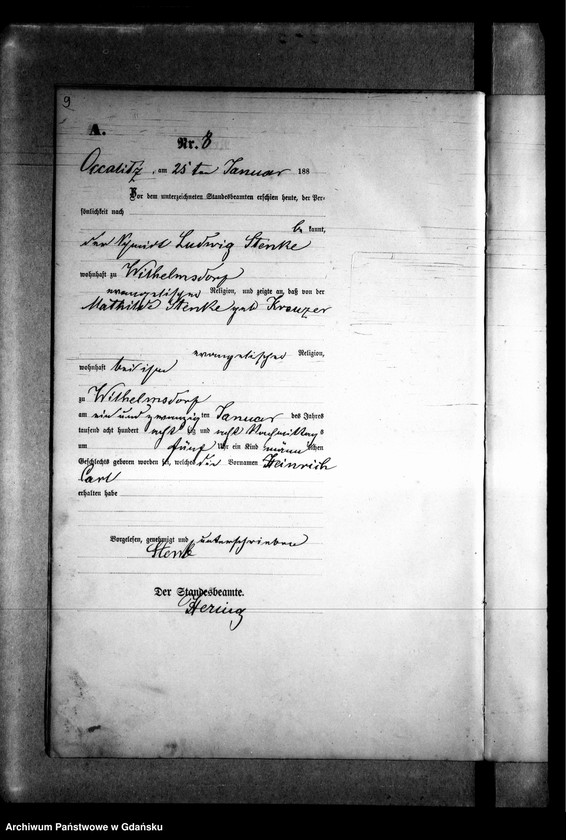 9
A.
Nr. 8
Occalitz, am 25 ten Januar 188
Vor dem unterzeichneten Standesbeamten erschien heute, der Per-
sönlichkeit nach
be kannt,
der Schmidt Ludwig Stenke
wohnhaft zu Wilhelmsdorf
evangelischer Religion, und zeigte an, daß von der
Mathilde Stenke geb Kreuzer
evangelischer Religion,
wohnhaft bei ihm
zu Wilhelmsdorf
am ein und zwanzig ten Januar des Jahres
tausend acht hundert acht zig und acht Nachmittags
um fünf Uhr ein Kind männlichen
Geschlechts geboren worden sei, welches die Vornamen Heinrich
Carl
erhalten habe
Vorgelesen, genehmigt und unterschrieben
Stenke
Der Standesbeamte.
Hering
Archiwum Państwowe w Gdańsku